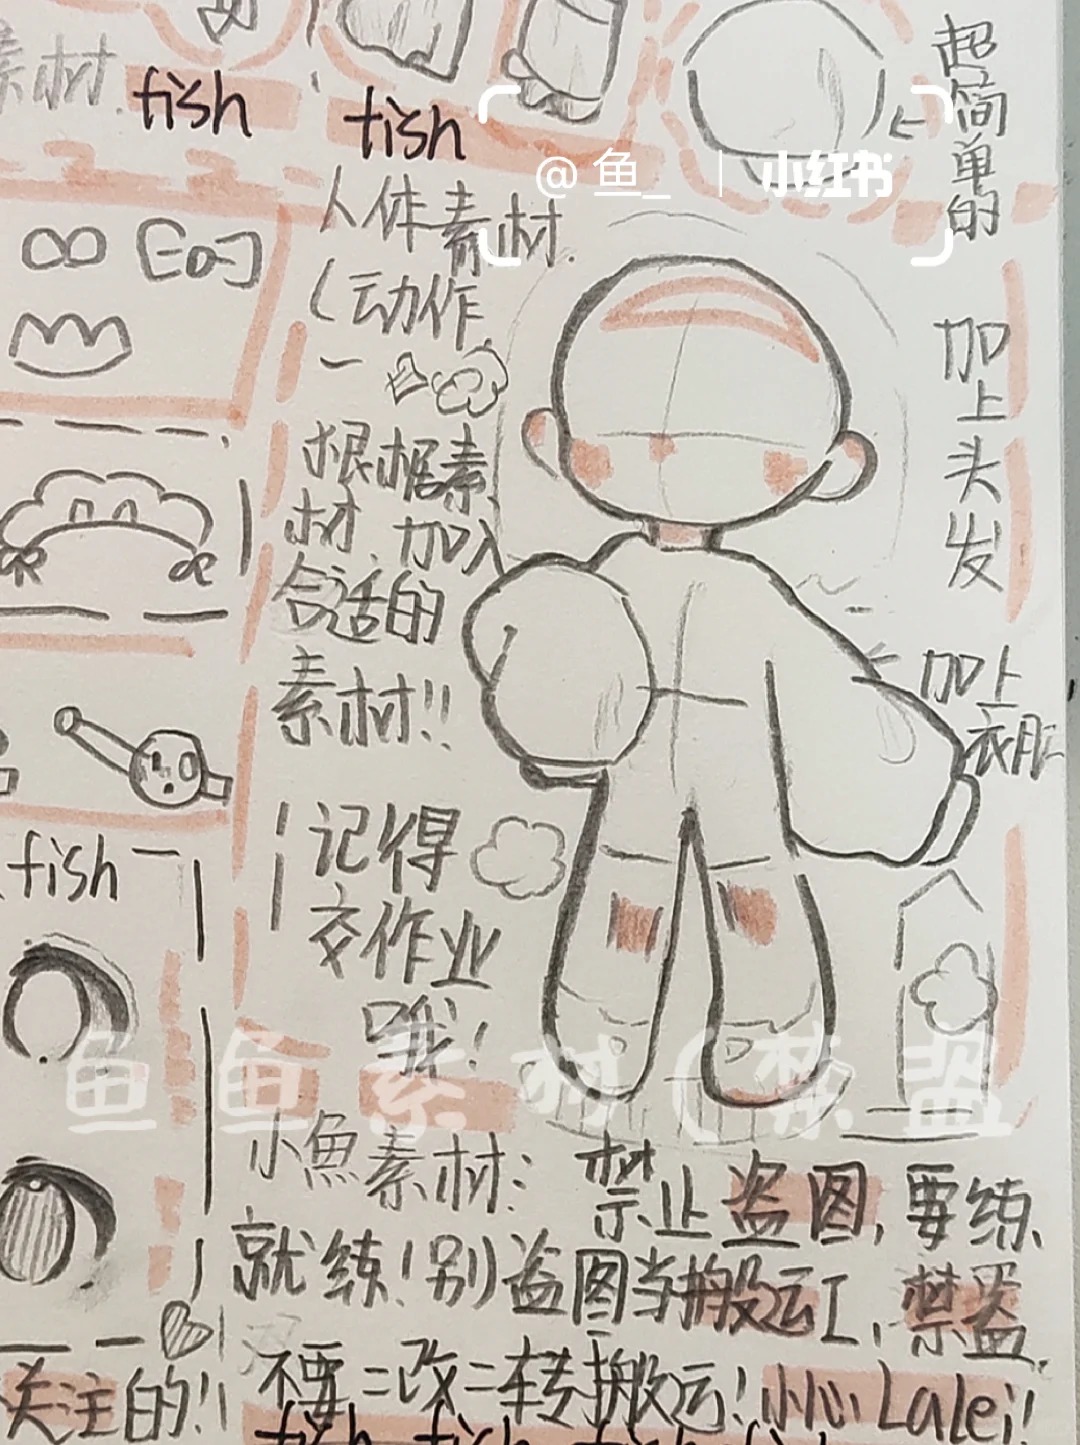 素材.
fish
fish
超简单的
@鱼_ | 小红书
人体素材.
(动作
加上头发
根据素
材,加入
合适的
素材!!
加上
衣服
记得
交作业
哦!
fish
鱼鱼素材(禁盗
小魚素材:
禁止盗图,要练
就练!别盗图当搬运工,禁盗.
不要二改二转搬运!小心Lalei!
关注的!
fish fish fish fish